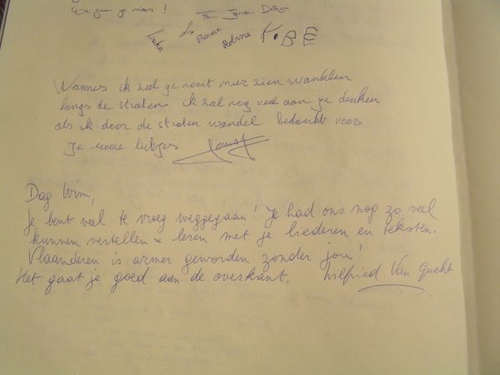 We gaan je missen!
Robine K.BEE
Wannes ik zal je nooit meer zien wandelen
langs de straten ik zal nog veel aan je denken
als ik door de straten wandel bedankt voor
je mooie liedjes Joust
Dag Wim,
Je bent veel te vroeg weggegaan! Je had ons nog zo veel
kunnen vertellen & leren met je liederen en teksten.
Vlaanderen is armer geworden zonder jou!
Het gaat je goed aan de overkant. Wilfried Van Gucht